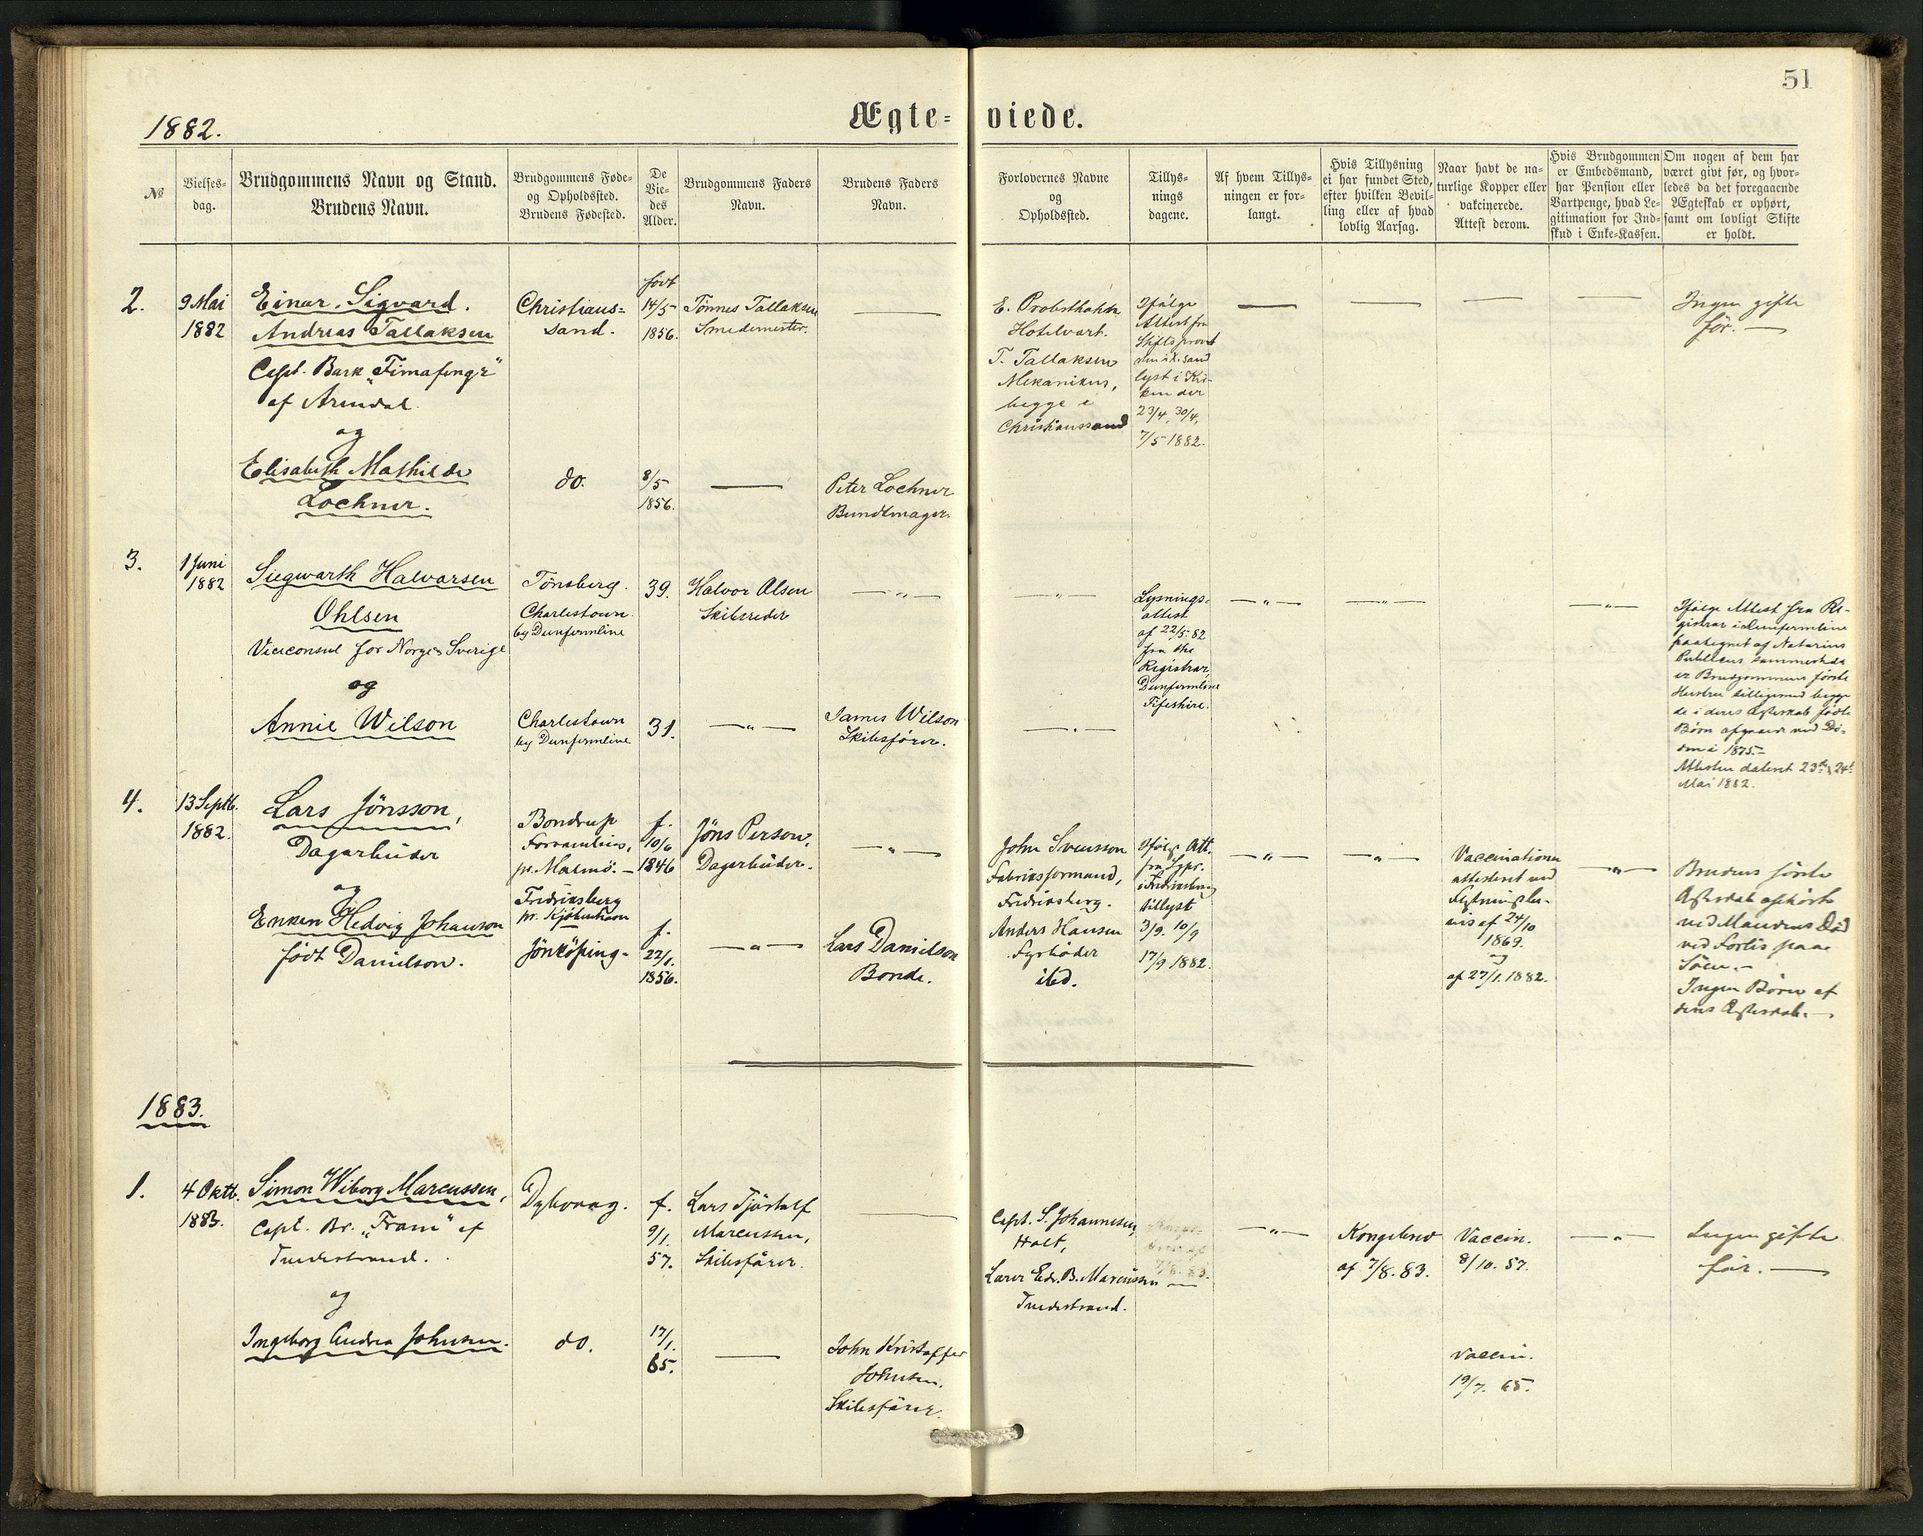 51
1882.
Ægte- viede.
№
Vielses-
dag.
Brudgommens Navn og Stand.
Brudens Navn.
Brudgommens Føde-
og Opholdssted.
Brudens Fødested.
De
Vie-
des
Alder.
Brudgommens Faders
Navn.
Brudens Faders
Navn.
Forlovernes Navne
og
Opholdssted.
Tillys-
nings
dagene.
Af hvem Tillys-
ningen er for-
langt.
Hvis Tillysning
ei har fundet Sted,
efter hvilken Bevil-
ling eller af hvad
lovlig Aarsag.
Naar havt de na-
turlige Kopper eller
vakcinerede.
Attest derom.
Hvis Brudgommen
er Embedsmand,
har Pension eller
Vartpenge, hvad Le-
gitimation for Ind-
skud i Enke-Kassen.
Om nogen af dem har
været givt før, og hvor-
ledes da det foregaaende
Ægteskab er ophørt,
samt om lovligt Skifte
er holdt.
2.
9 Mai
1882
Einar Sigvard
Andreas Tallaksen
Capt. Bark „Fimafeng"
af Arendal.
og
Elisabeth Mathilde
Lochner.
Christians-
sand.
do.
født
14/5
1856.
8/5
1856.
Tønnes Tallaksen
Smedemester.
Peter Lochner
Bundtmager.
E. Probsthahn
Hotelvært.
T. Tallaksen
Mekanikus,
begge i
Christianssand
Ifølge
Attest fra
Stiftsprovst
den i K.sand
lyst i Kir-
ken der
23/4, 30/4,
7/5 1882.
Ingen gifte
før. —
3.
1 Juni
1882
Siegwarth Halvorsen
Ohlsen
Viceconsul for Norge & Sverige
og
Annie Wilson
Tønsberg.
Charlestown
by Dunfermline
Charlestown
by Dunfermline
39.
31.
Halvor Olsen
Skibsreder
James Wilson
Skibsfører.
Lysnings-
attest
af 22/5 82
fra the
Registrar,
Dunfermline
Fifeshire.
Ifølge Attest fra Re-
gistrar i Dunfermline
paategnet af Notarius
Publicus sammesteds
er Brudgommens første
Hustru tilligemed begge
de i deres Ægteskab fødte
Børn afgaaede ved Dø-
den i 1875.—
Attesten dateret 23de & 24de
Mai 1882.
4.
13 Septb.
1882.
Lars Jönsson,
Dagarbeider
og
Enken Hedvig Johanson
født Danielson.
Bondrup
pr. Malmö. —
Fredriksberg
pr. Kjøbenhavn
Jönköping.
f.
10/6
1846
f.
22/1.
1856.
Jöns Person,
Dagarbeider.
Lars Danielson
Bonde.
John Svensson
Fabriksformand,
Fredriksberg.
Anders Hansen
Fyrbøder
ibd.
Ifølge Att.
fra Sgpr.
i Fredriksberg
tillyst
3/9. 10/9
17/9 1882.
Vaccinationen
attesteret ved
Flytningsbe-
vis af 24/10
1869.
og
af 27/1. 1882.
Brudens første
Ægteskab ophørte
ved Mandens Død
ved Forlis paa
Søen.—
Ingen Børn af
dens Ægteskab. —
1883.
1.
4 Oktb.
1883.
Simon Wiborg Marcussen,
Capt. Br. „Fram" af
Tvedestrand.
og
Ingeborg Andrea Johnsen.
Dybvaag.
do.
f.
9/1.
57.
17/1.
65.
Lars Tjøstolf
Marcussen,
Skibsfører.
John Kristoffer
Johnsen,
Skibsfører.
Capt. S. Johannesen,
Holt,
Lærer Edv. B. Marcussen
Tvedestrand.
Kongebrev
af 7/8. 83.
Vaccin.
8/10. 57.
Vaccin.
19/7. 65.
Ingen gifte
før. —